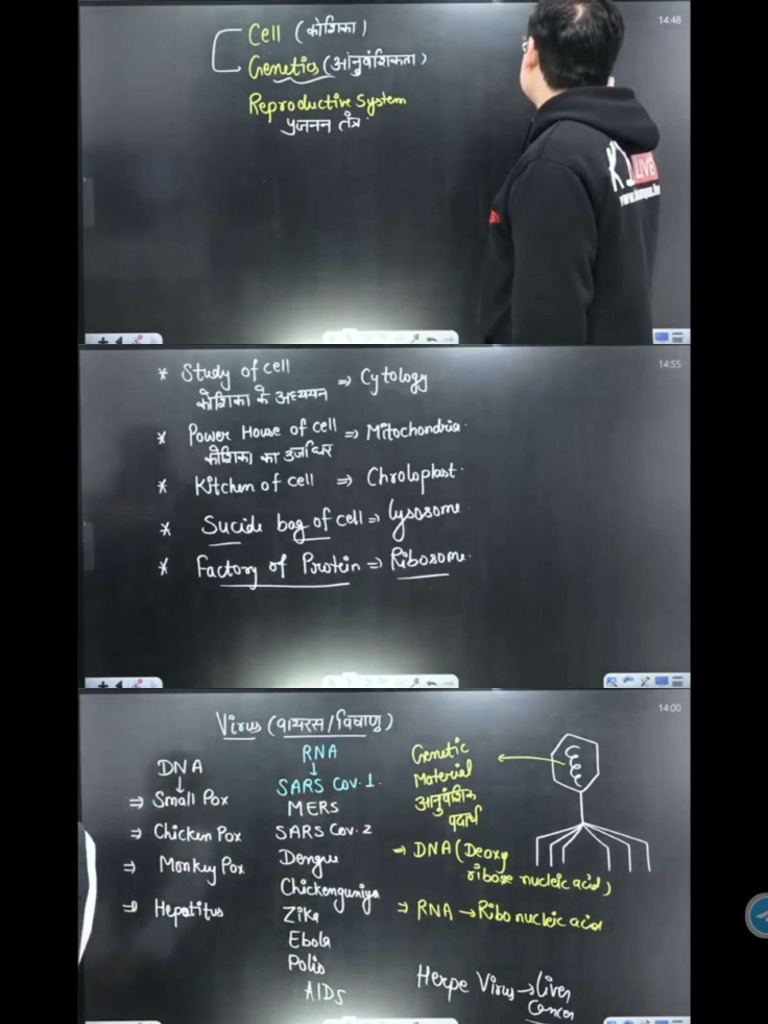 14:48
Cell (कोशिका)
Genetics (आनुवंशिकता)
Reproductive System
प्रजनन तंत्र
LIVE
14:55
* Study of cell ⇒ Cytology
कोशिका के अध्ययन
* Power House of cell ⇒ Mitochondria
कोशिका का उर्जाघर
* Kitchen of cell ⇒ Chroloplast
* Sucide bag of cell ⇒ Lysosome
* Factory of Protein ⇒ Ribosome
14:00
Virus (वायरस/विषाणु)
DNA
↓
⇒ Small Pox
⇒ Chicken Pox
⇒ Monkey Pox
⇒ Hepatitus
RNA
↓
SARS Cov.1
MERS
SARS Cov.2
Dengue
Chickenguniya
Zika
Ebola
Polio
AIDs
Genetic
Material
आनुवंशिक
पदार्थ
→ DNA (Deoxy
ribose nucleic acid)
⇒ RNA → Ribo nucleic acid
Herpe Virus → Liver
Cancer